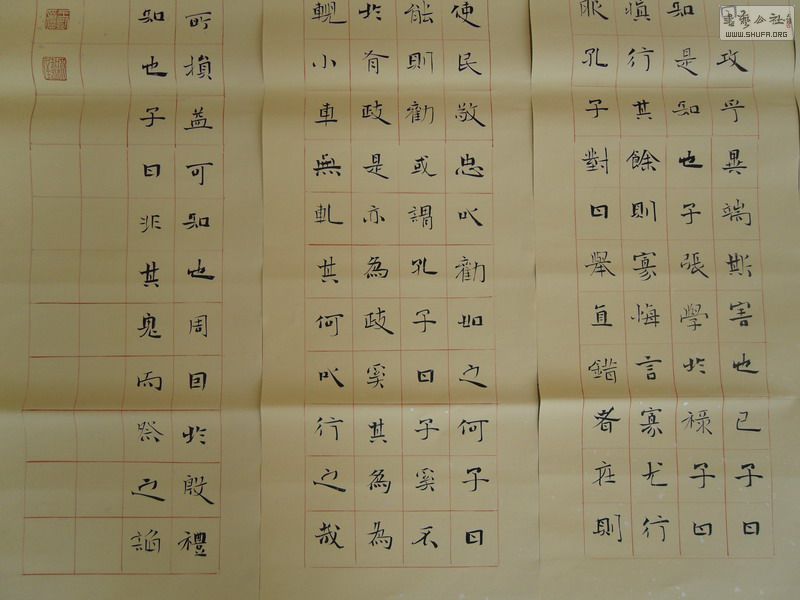 攻乎異端斯害也已子曰
知是知也子張學於祿子曰
慎行其餘則寡悔言寡尤行
服孔子對曰舉直錯者在則
使民敬忠以勸如之何子曰
能則勸或謂孔子曰子奚不
於有政是亦為政奚其為為
輗小車無軏其何以行之哉
所損益可知也周因於殷禮
知也子曰非其鬼而祭之諂
書藝公社
WWW.SHUFA.ORG